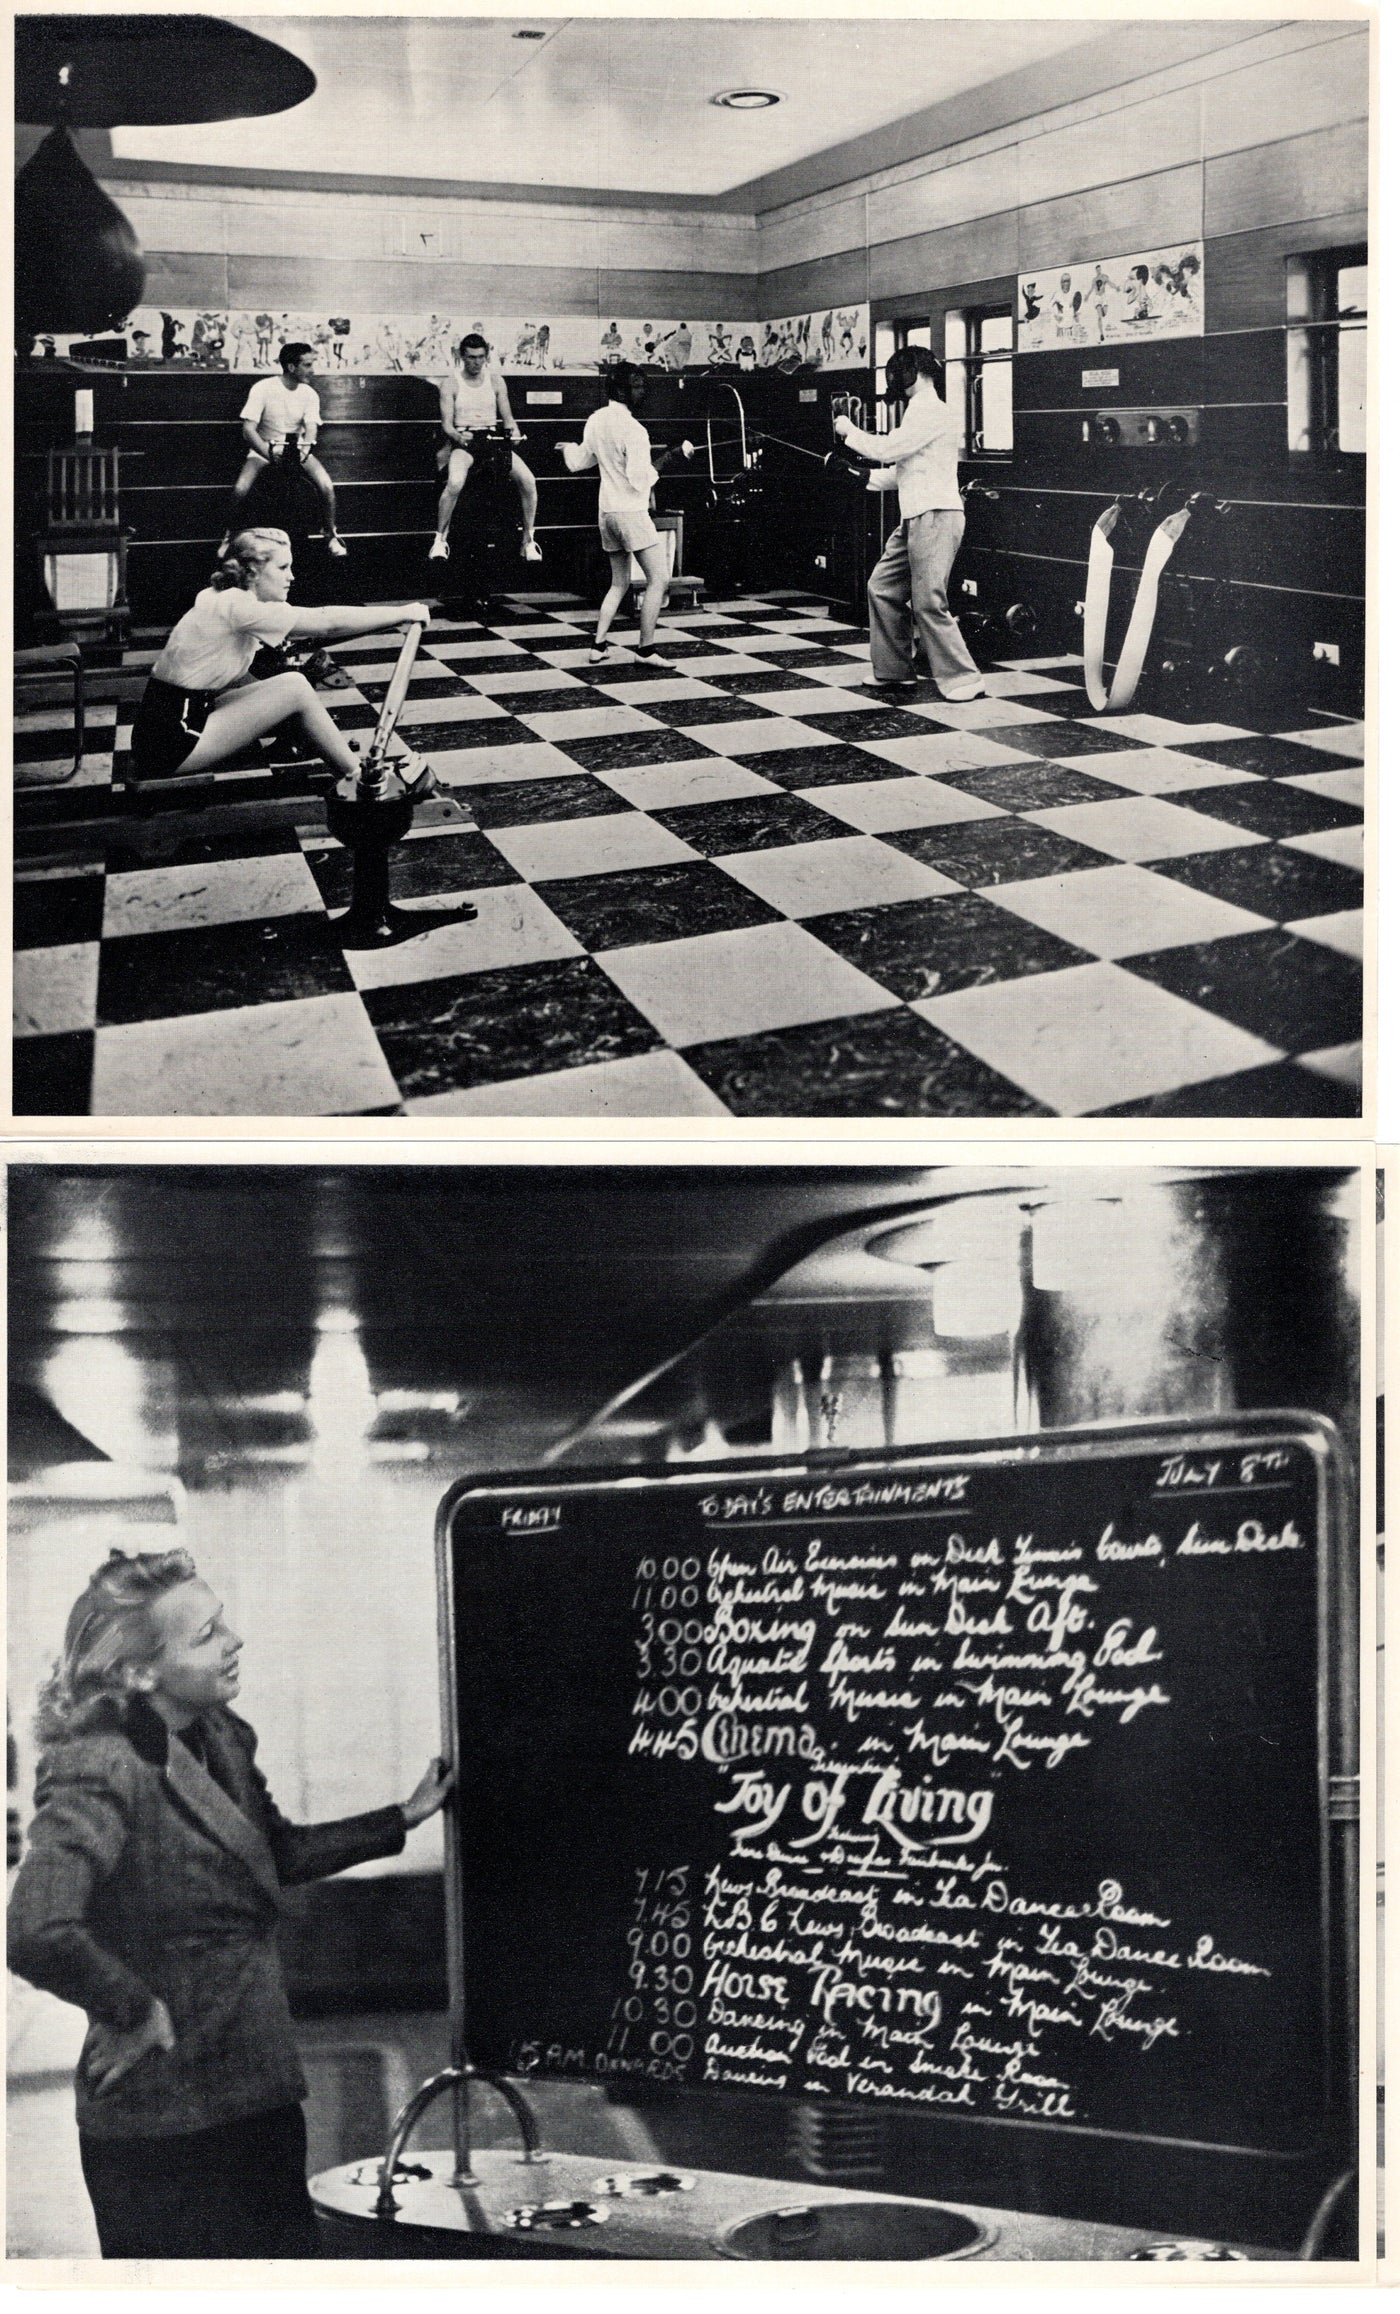 FRIDAY TODAY'S ENTERTAINMENTS JULY 8TH
10 00 Open Air Exercises on Deck Tennis Courts, Sun Deck.
11.00 Orchestral Music in Main Lounge
3.00 Boxing on Sun Deck Aft.
3 30 Aquatic Sports in Swimming Pool.
4.00 Orchestral Music in Main Lounge
4.45 Cinema in Main Lounge
"Joy of Living"
Fairbanks Jnr.
7.15 News Broadcast in Tea Dance Room
7.45 News Broadcast in Tea Dance Room
9.00 Orchestral Music in Main Lounge.
9.30 Horse Racing in Main Lounge.
10.30 Dancing in Main Lounge
11 00 Auction Pool in Smoke Room
A.M. ONWARDS Dancing in Verandah Grill.